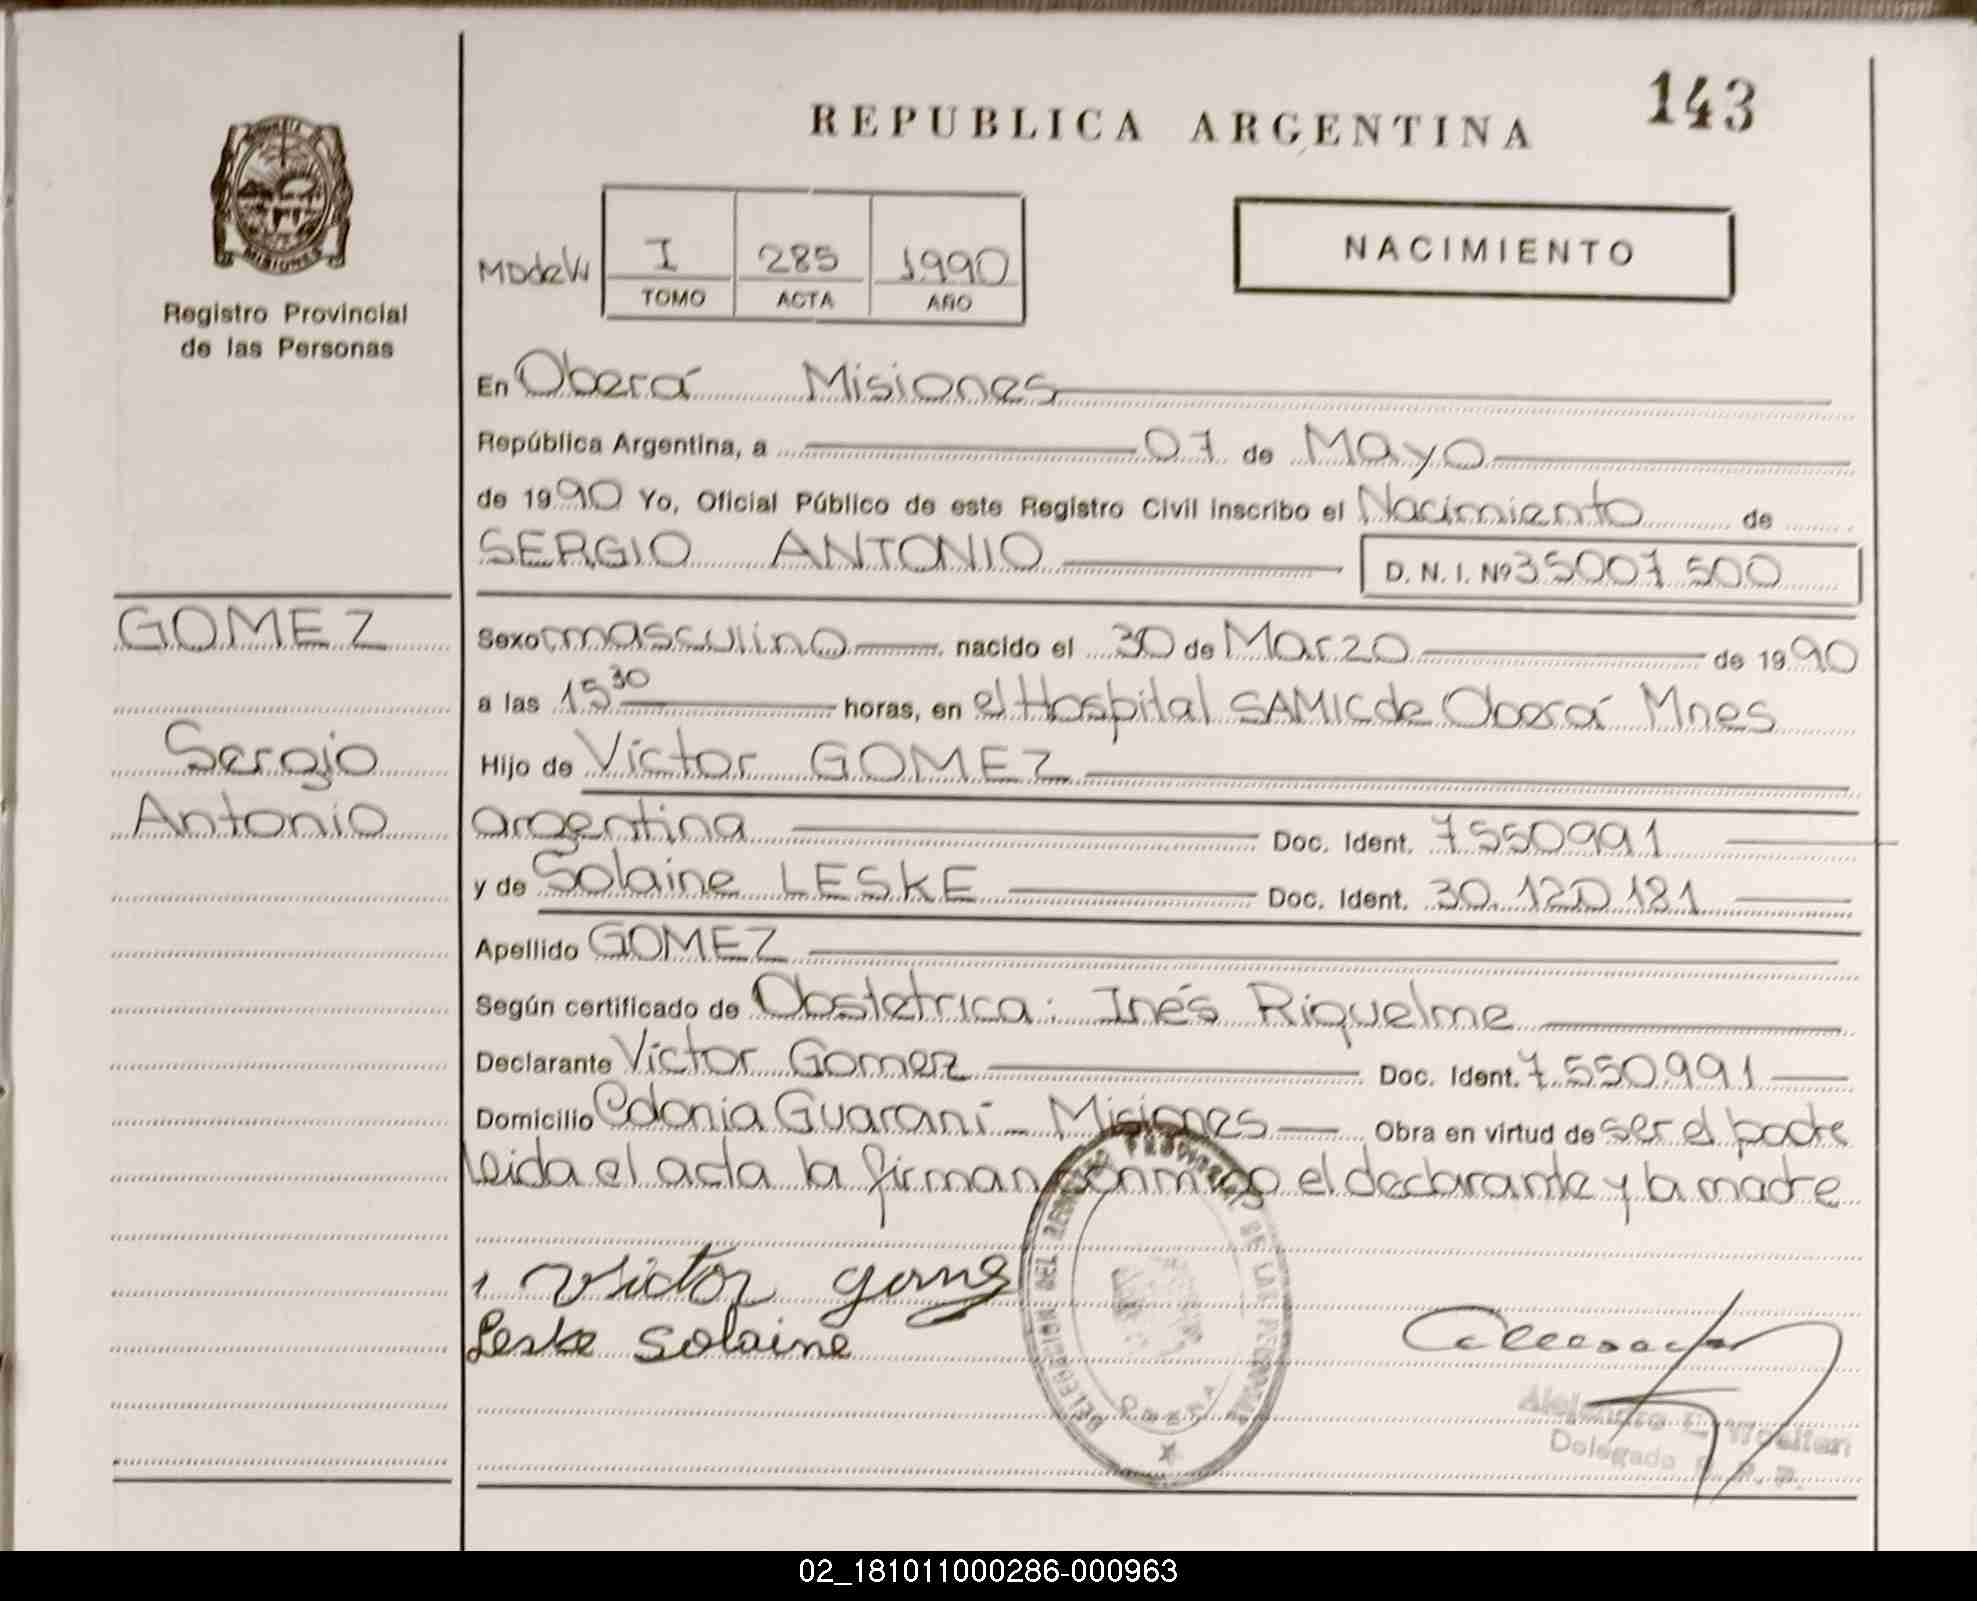 REPUBLICA ARGENTINA
143
MISIONES
Registro Provincial
de las Personas
I 285 1990
TOMO ACTA AÑO
NACIMIENTO
En Oberá Misiones
República Argentina, a 07 de Mayo
de 1990 Yo, Oficial Público de este Registro Civil inscribo el Nacimiento de
SERGIO ANTONIO D. N. I. Nº 35007500
GOMEZ
Sergio
Antonio
Sexo masculino nacido el 30 de Marzo de 1990
a las 15 30 horas, en el Hospital SAMIC de Oberá Mnes
Hijo de Víctor GOMEZ
argentina Doc. Ident. 7550991
y de Solaine LESKE Doc. Ident. 30.120181
Apellido GOMEZ
Según certificado de Obstetrica: Inés Riquelme
Declarante Víctor Gomez Doc. Ident. 7.550991
Domicilio Colonia Guaraní - Misiones Obra en virtud de ser el padre
leida el acta la firman conmigo el declarante y la madre
Victor gomez
Leske Solaine
DELEGACION DEL REGISTRO PROVINCIAL DE LAS PERSONAS
OBERA
Delegado
02_181011000286-000963